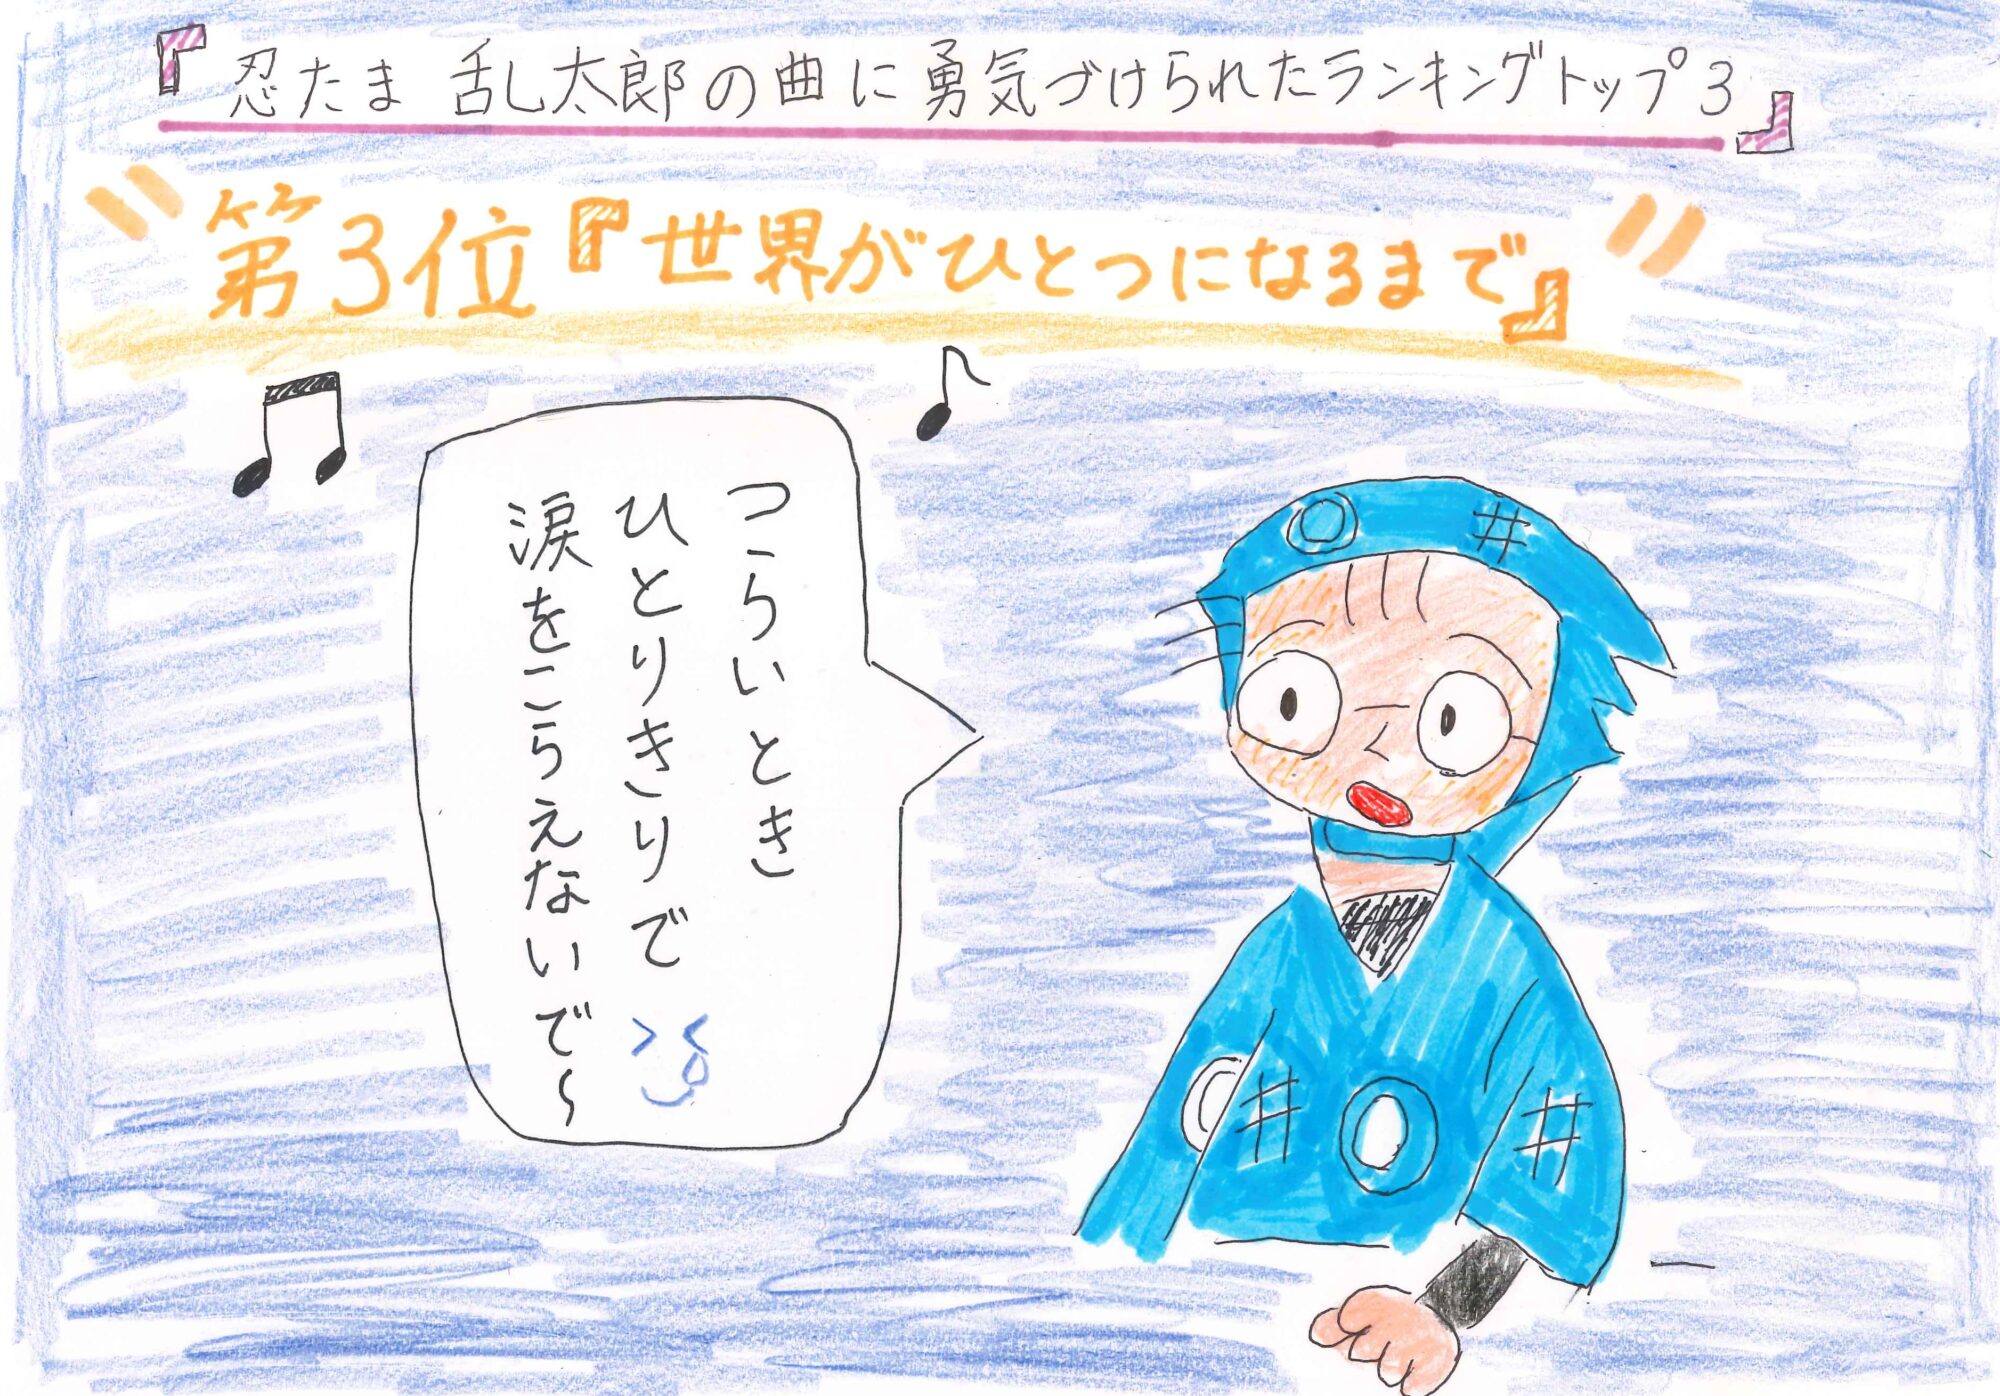 『忍たま 乱太郎の曲に勇気づけられたランキングトップ3』
第3位『世界がひとつになるまで』
つらいとき
ひとりきりで
涙をこらえないで〜